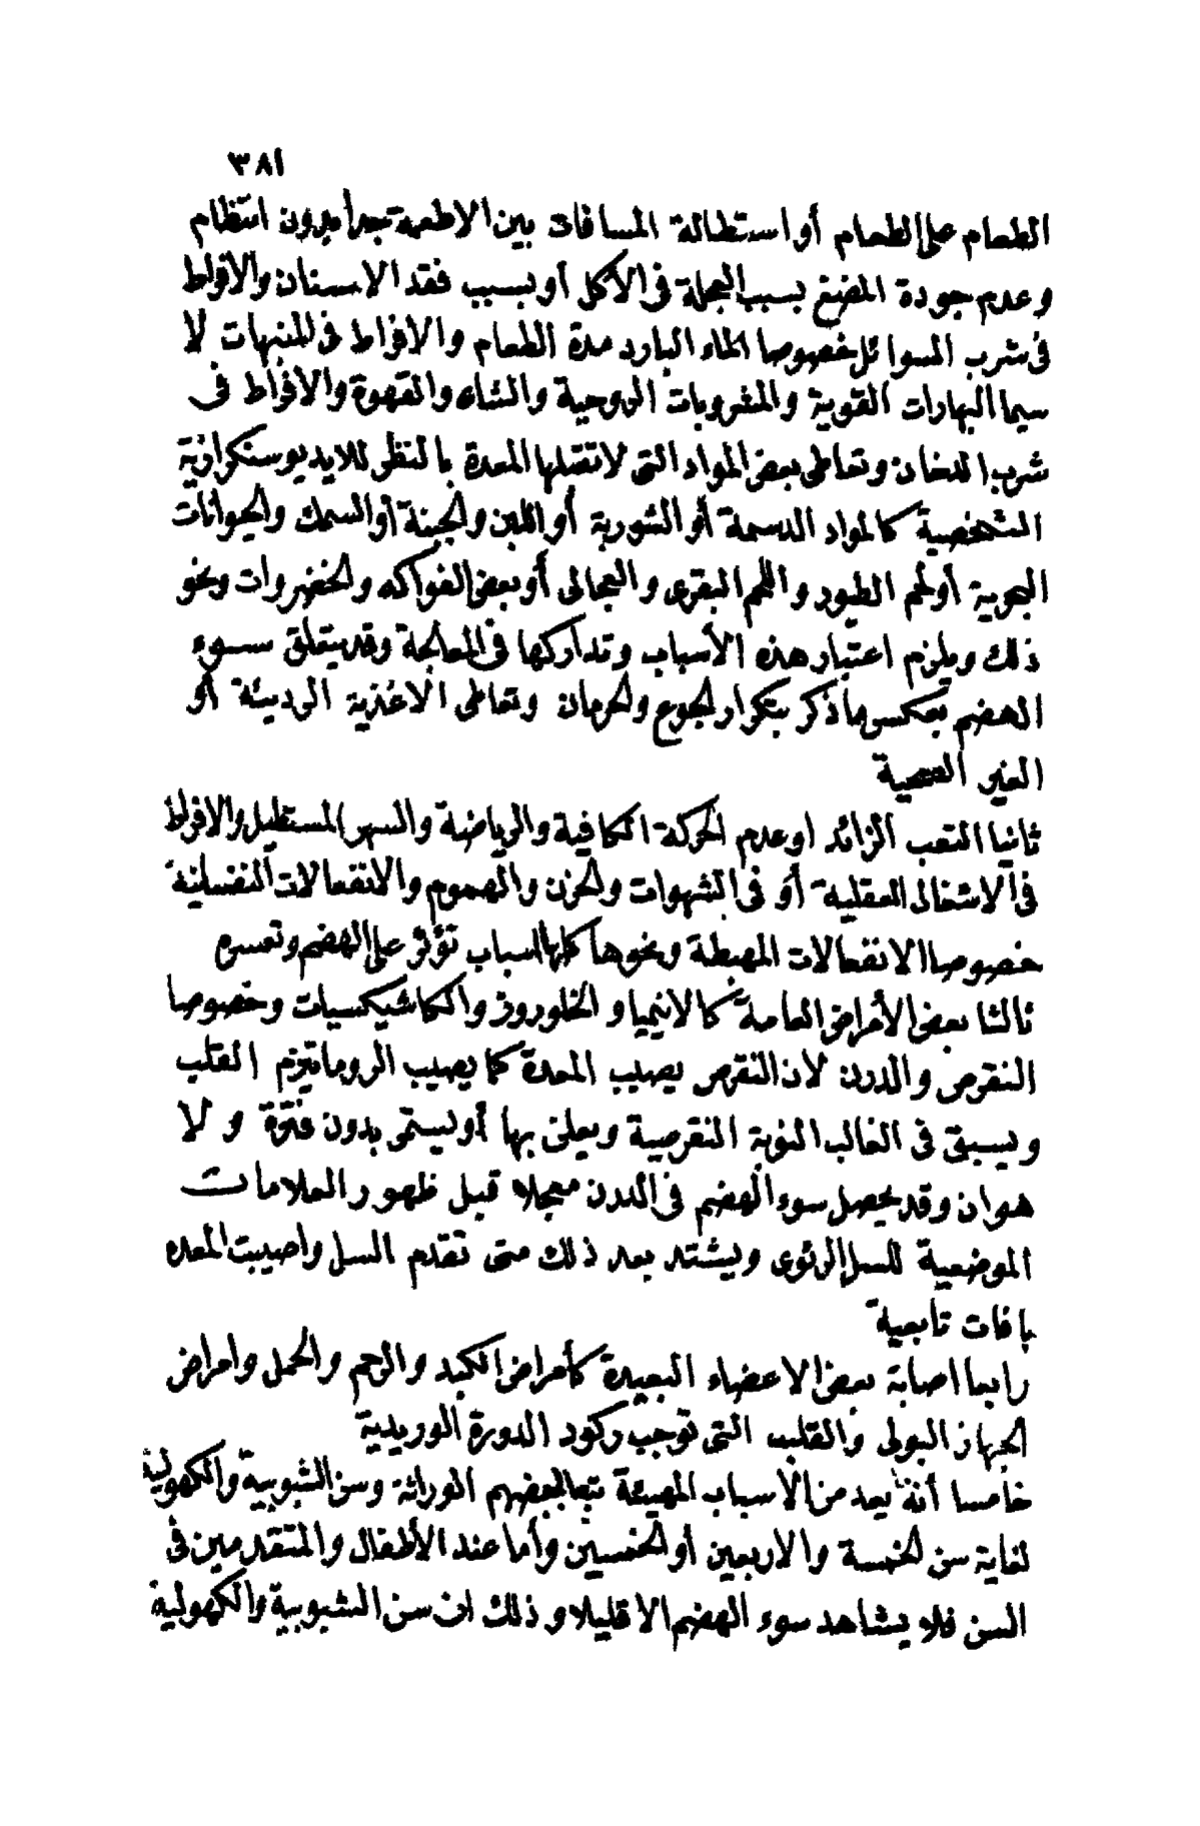 ٣٨١
الطعام على الطعام أو استطالة المسافات بين الاطعمة جدا بدون انتظام
وعدم جودة المضغ بسبب العجلة فى الأكل أو بسبب فقد الاسنان والافراط
فى شرب السوائل خصوصا الماء البارد مدة الطعام والافراط فى المنبهات لا
سيما البهارات القوية والمشروبات الروحية والشاء والقهوة والافراط فى
شرب الدخان وتعاطى بعض المواد التى لا تقبلها المعدة بالنظر للايديوسنكرازية
الشخصية كالمواد الدسمة أو الشوربة أو اللبن والجبنة أو السمك والحيوانات
البحرية أو لحم الطيور واللحم البقرى والعجالى أو بعض الفواكه والخضروات ونحو
ذلك ويلزم اعتبار هذه الأسباب وتداركها فى المعالجة وقد يتعلق سوء
الهضم بعكس ما ذكر بتكرار الجوع والحرمان وتعاطى الاغذية الرديئة أو
الغير الصحية
ثانيا التعب الزائد او عدم الحركة الكافية والرياضة والسهر المستطيل والافراط
فى الاشغال العقلية أو فى الشهوات والحزن والهموم والانفعالات النفسانية
خصوصا الانفعالات المهبطة ونحوها كلها اسباب تؤثر على الهضم وتعسره
ثالثا بعض الأمراض العامة كالانيميا و الخلوروز والكاشيكسيات وخصوصا
النقرص والدرن لان النقرص يصيب المعدة كما يصيب الروماتيزم القلب
ويسبق فى الغالب النوبة النقرصية ويعلن بها أو يستمر بدون فترة ولا
هوان وقد يحصل سوء الهضم فى الدرن معجلا قبل ظهور العلامات
الموضعية للسل الرئوى ويشتد بعد ذلك متى تقدم السل واصيبت المعده
بافات تابعية
رابعا اصابة بعض الاعضاء البعيدة كأمراض الكبد والرحم والحمل وامراض
الجهاز البولى والقلب التى توجب ركود الدورة الوريدية
خامسا أنه يعد من الاسباب المهيئة تبعا لبعضهم الوراثة وسن الشبوبية والكهولية
لغاية سن الخمسة والاربعين أو الخمسين وأما عند الأطفال والمتقدمين فى
السن فلا يشاهد سوء الهضم الا قليلا وذلك ان سن الشبوبية والكهولية